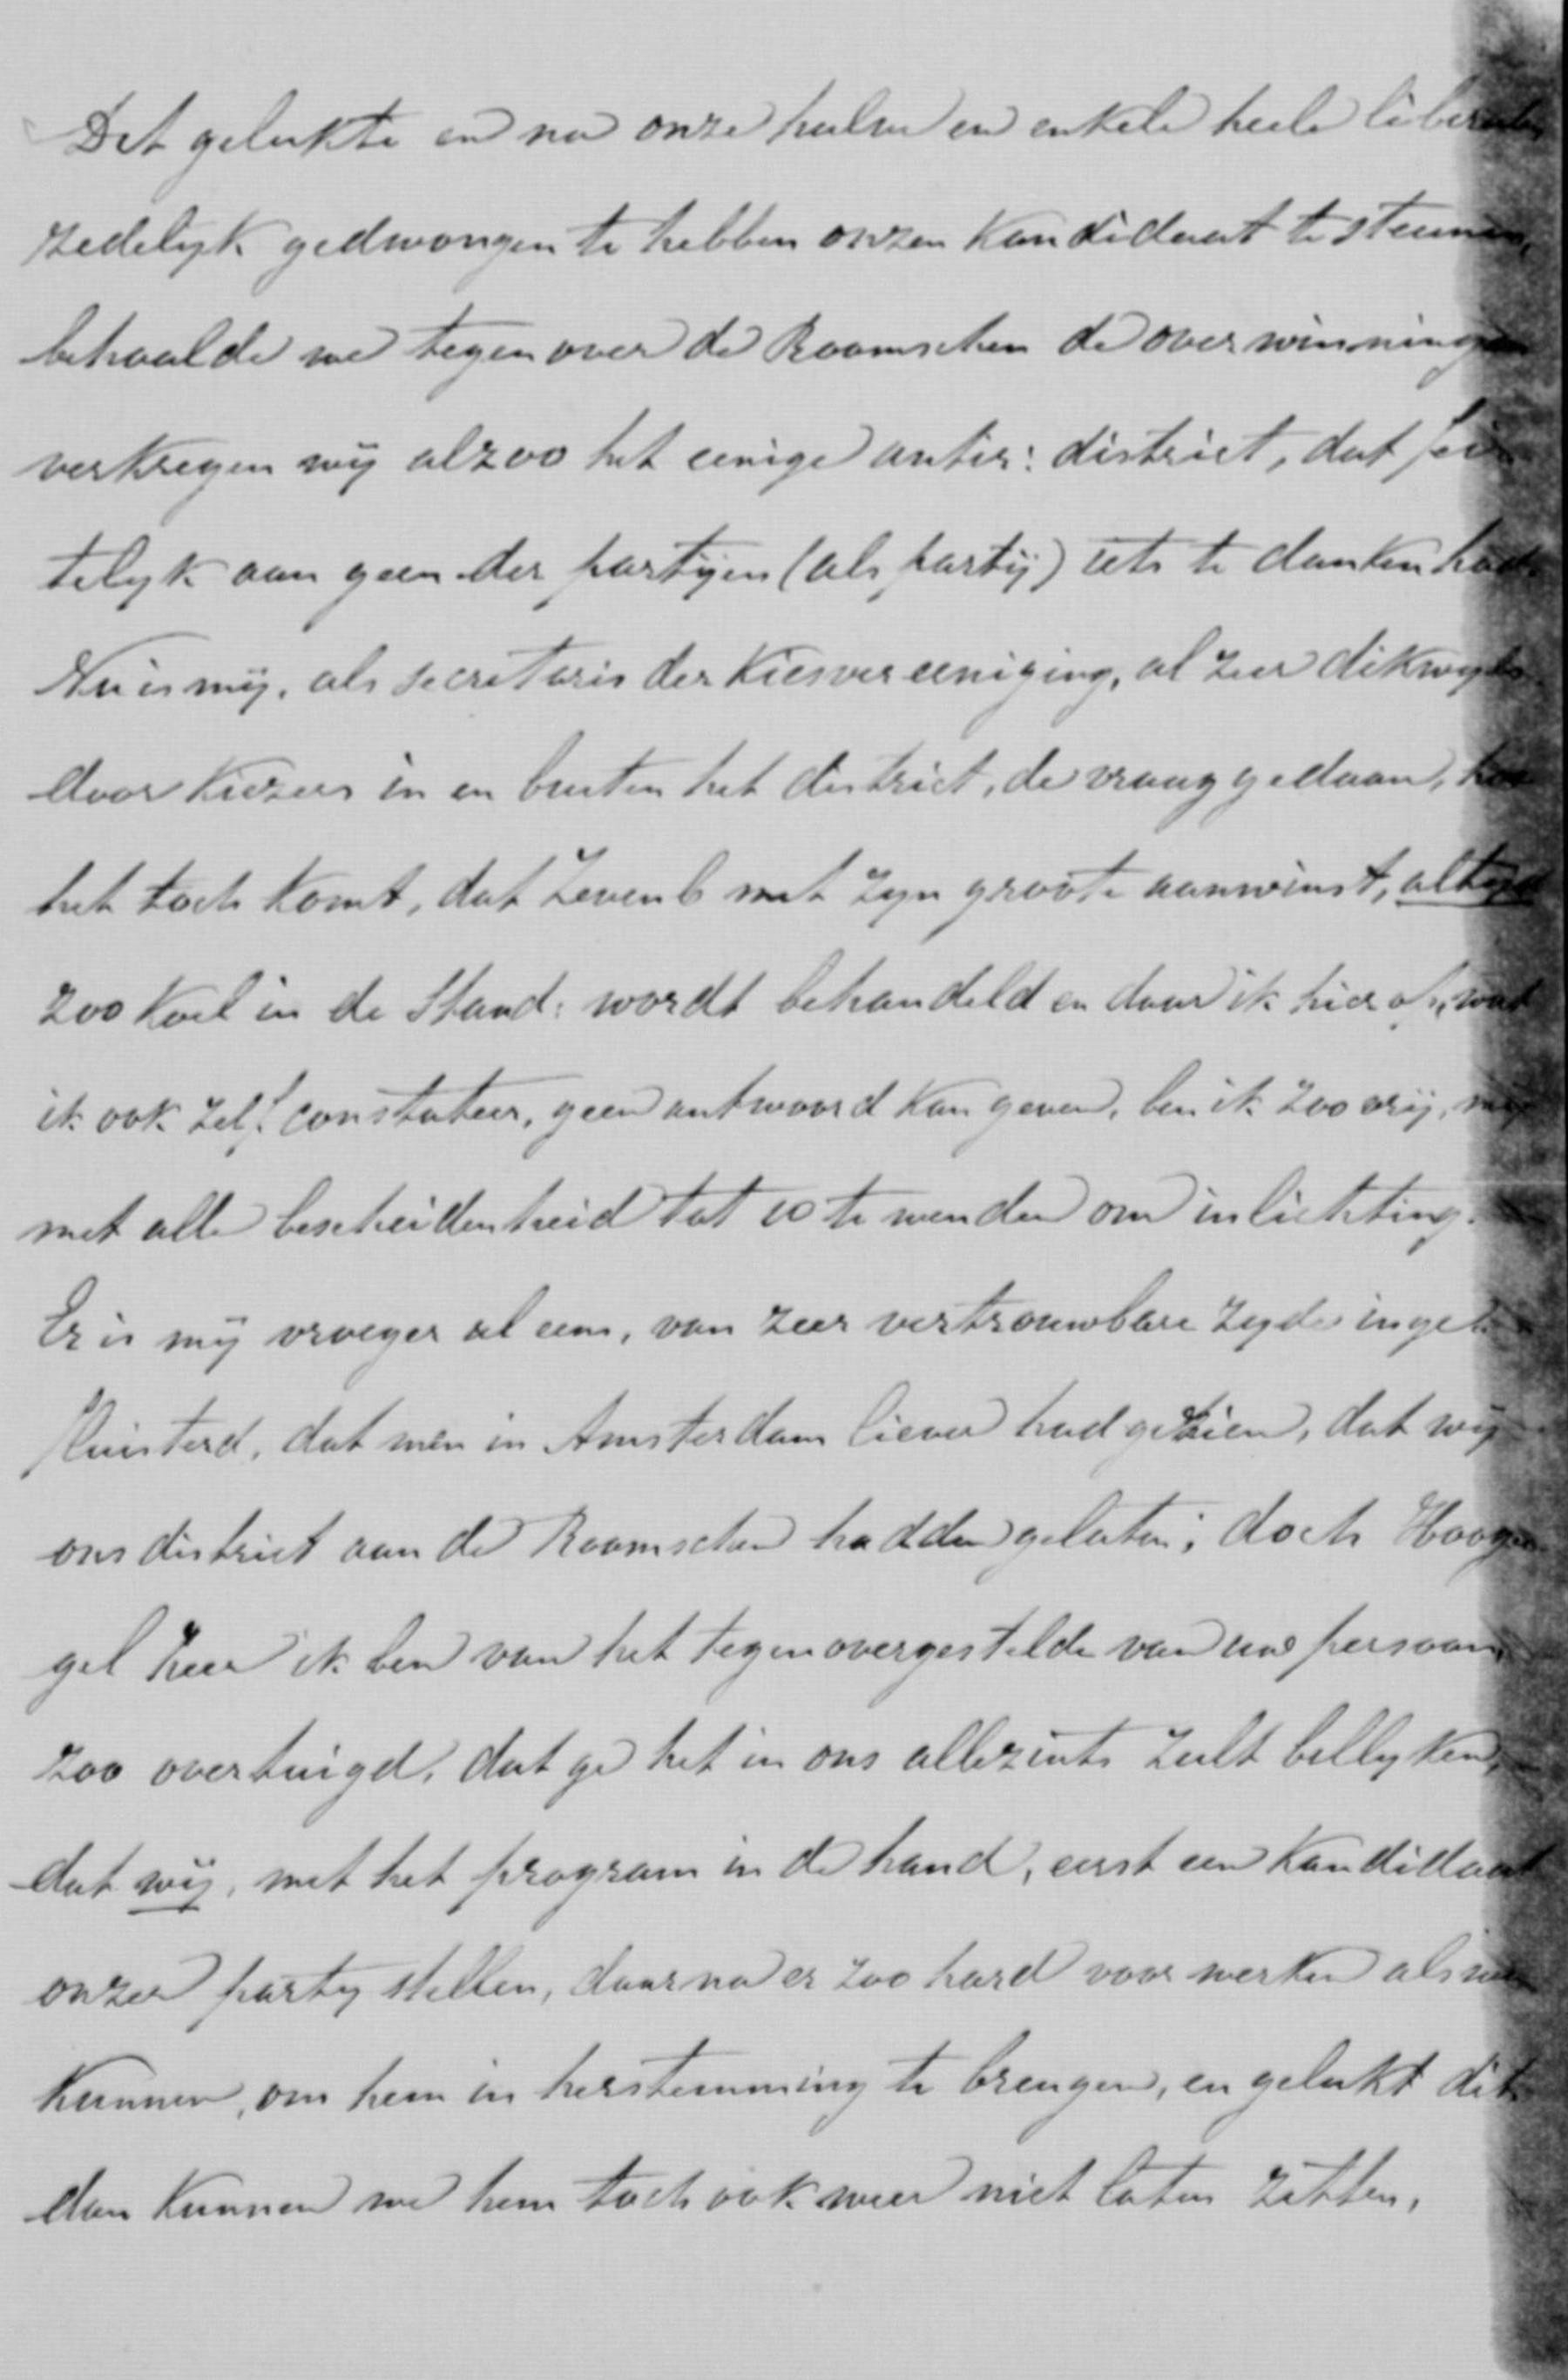 Dit gelukte en na onze halve en enkele heele liberalen
zedelyk gedwongen te hebben onzen Kandidaat te steunen,
behaalde we tegenover de Roomschen de overwinning en
verkregen wij alzoo het eenige antir: district, dat fei
telyk aan geen der partijen (als partij) iets te danken had.
Nu is mij, als secretaris der Kiesvereeniging, al zeer dikwyls
door Kiezers in en buiten het district, de vraag gedaan, hoe
het toch komt, dat Zevenb met zyn groote aanwinst, altyd
zoo koel in de Stand: wordt behandeld en daar ik hier op, wat
ik ook zelf constateer, geen antwoord kan geven, ben ik zoo vrij, mij
met alle bescheidenheid tot U te wenden om inlichting.
Er is mij vroeger al eens, van zeer vertrouwbare zyde inge
fluisterd, dat men in Amsterdam liever had gezien, dat wij
ons district aan de Roomschen hadden gelaten; doch Hoog
gel Heer ik ben van het tegenovergestelde van uw persoon,
zoo overtuigd, dat ge het in ons allezints zult billyken,
dat wij, met het program in de hand, eerst een Kandidaat
onzer party stellen, daarna er zoo hard voor werken als we
Kunnen, om hem in herstemming te brengen, en gelukt dit
dan Kunnen we hem toch ook weer niet laten zitten,